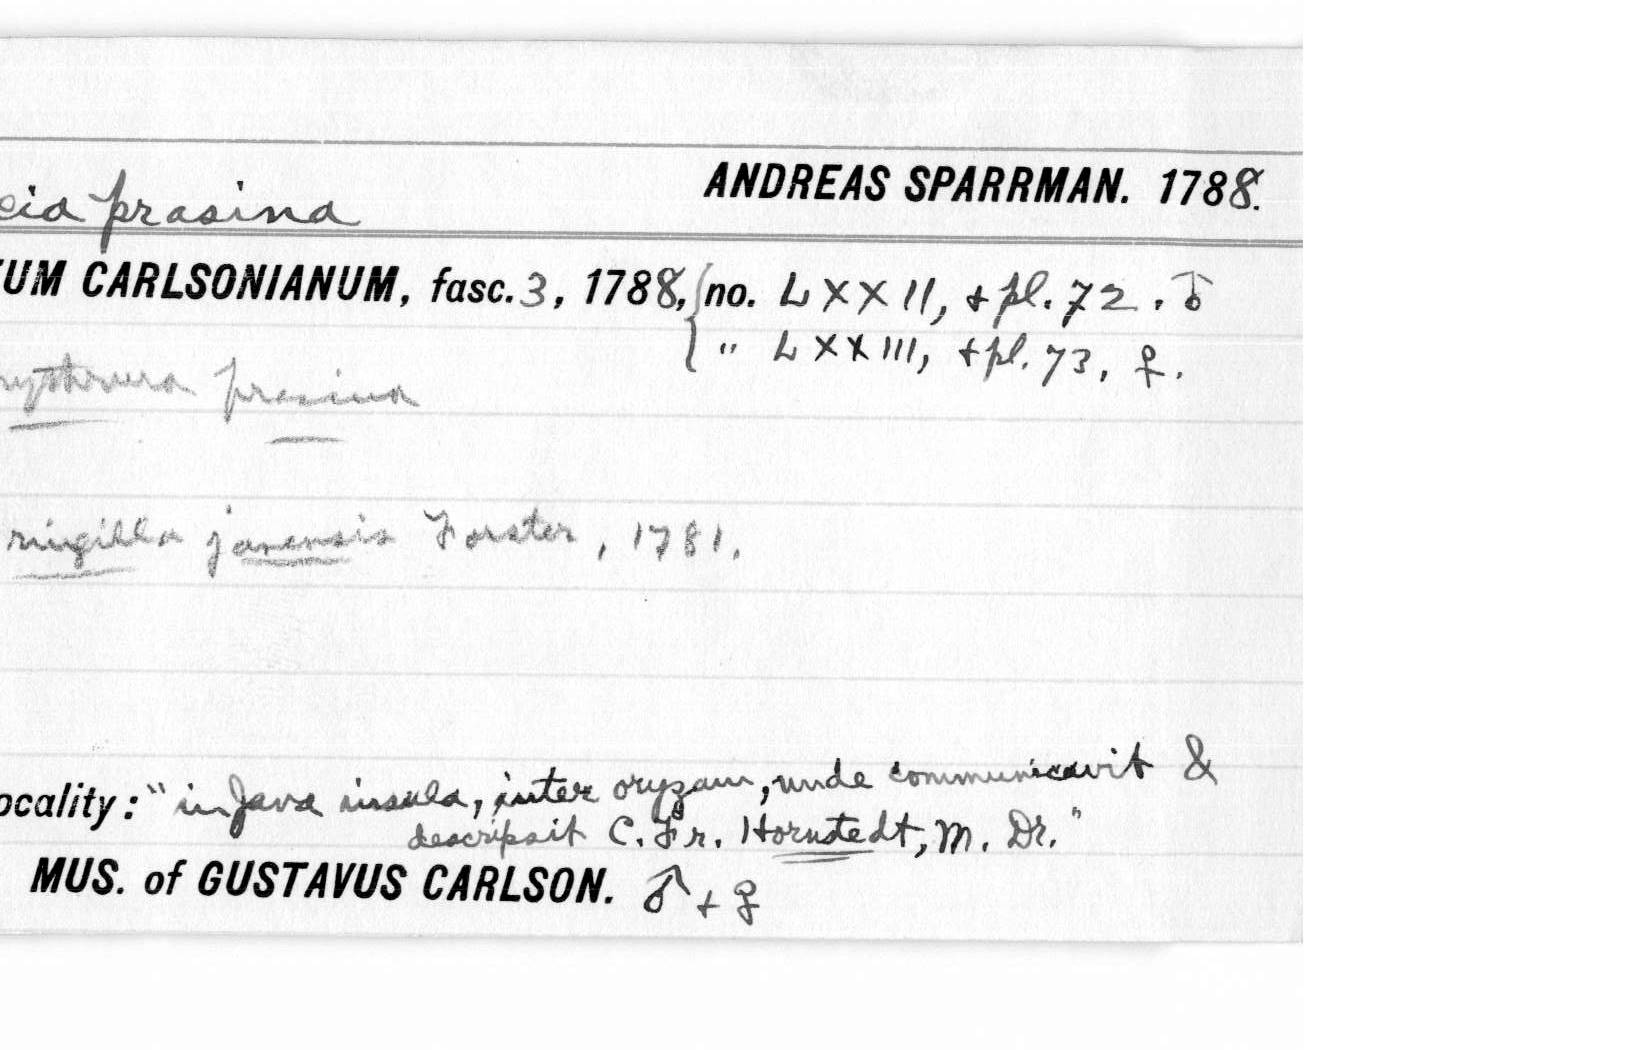 ANDREAS SPARRMAN. 1788.
cia prasina
UM CARLSONIANUM, fasc. 3, 1788, no. LXXII, + pl. 72. ♂
" LXXIII, + pl. 73, ♀.
rythrura prasina
ringilla javensis Forster, 1781.
ocality: "in Java insula, inter oryzam, unde communicavit &
descripsit C. Fr. Hornstedt, M. Dr."
MUS. of GUSTAVUS CARLSON. ♂ + ♀